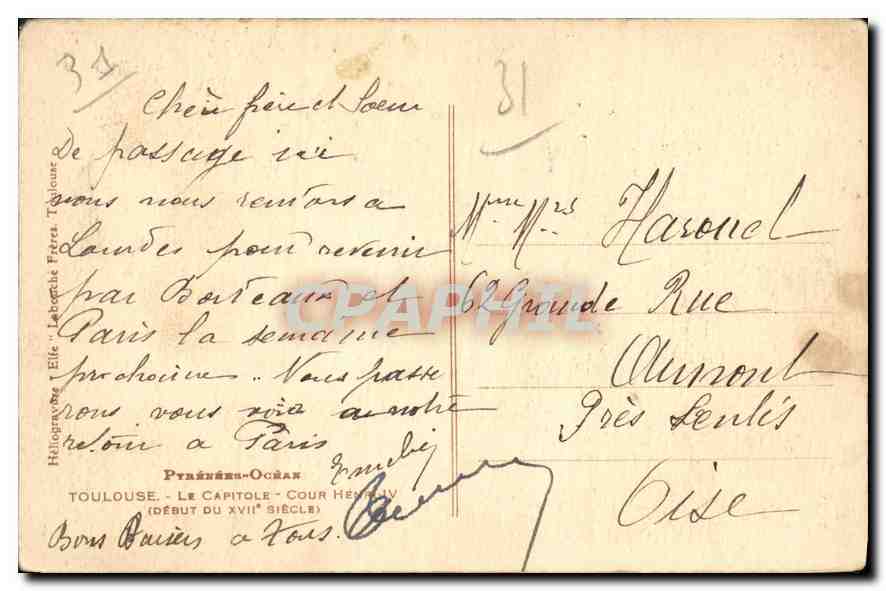 31
Chèr frère et Soeur
De passage ici
nous nous rentors a
Lourdes pour revenir
par Bordeaux et
Paris la semaine
prochaine .. Nous passe
rons vous voir a notre
retour a Paris
Bons Baisers a Tous.
PYRÉNÉES-OCÉAN
TOULOUSE. - LE CAPITOLE - COUR HENRI IV
(DÉBUT DU XVIIe SIÈCLE)
Héliogravure "Elfe" Labouche Frères. Toulouse
31
Mme Mrs Harouel
62 Grande Rue
Aumont
Près Senlis
Oise
CPAPHIL